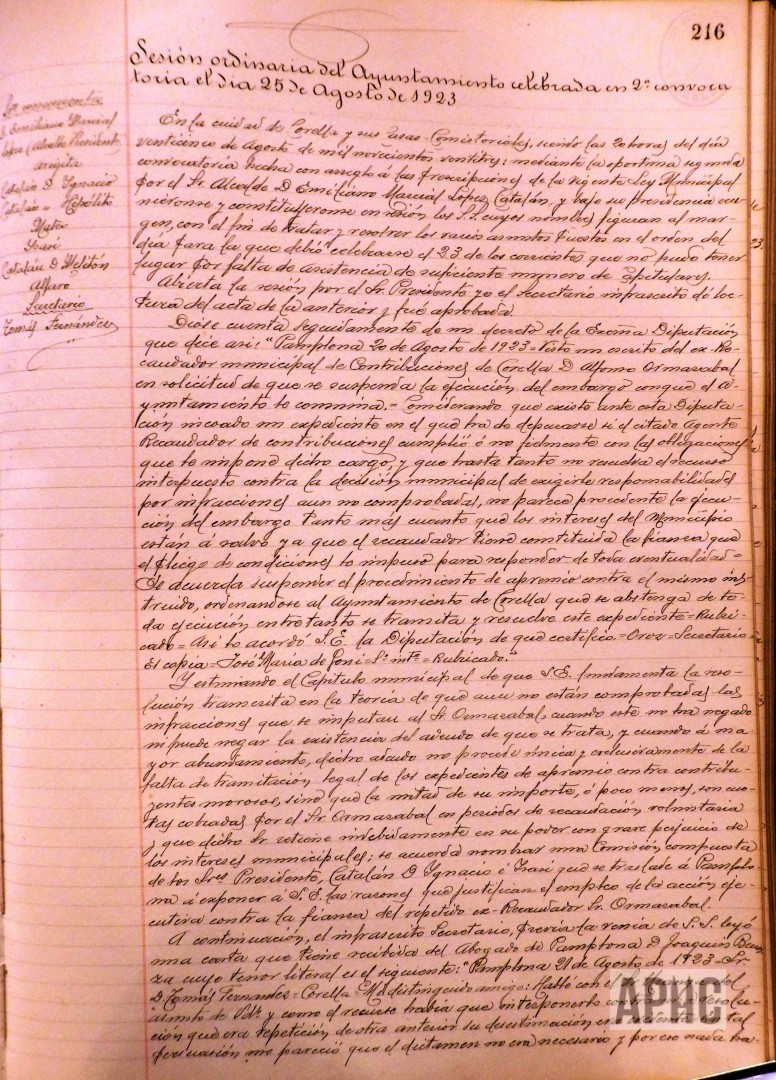 216
Sesión ordinaria del Ayuntamiento celebrada en 2ª convoca
toria el día 25 de Agosto de 1923
Sres concurrentes
D. Emiliano Marcial
López (Alcalde Presidente)
Argüta
Catalán D. Ygnacio
Catalán " Hipólito
Mateo
Ysasi
Catalán D. Melitón
Alfaro
Secretario
Tomás Fernández
En la ciudad de Corella y sus Casas-Consistoriales, siendo las 20 horas del día
venticinco de Agosto de mil novecientos ventitres: mediante la oportuna segunda
convocatoria hecha con arreglo á las prescripciones de la vigente Ley Municipal
por el Sr. Alcalde D. Emiliano Marcial López Catalán, y bajo su presidencia reu-
niéronse y constituyéronse en sesión los S.S. cuyos nombres figuran al mar-
gen, con el fin de tratar y resolver los varios asuntos puestos en el orden del
día para la que debió celebrarse el 23 de los corrientes que no pudo tener
lugar por falta de asistencia de suficiente número de Capitulares.
Abierta la sesión por el Sr. Presidente yo el Secretario infrascrito dí lec-
tura del acta de la anterior y fué aprobada.
Dióse cuenta seguidamente de un decreto de la Excma Diputación
que dice así: "Pamplona 20 de Agosto de 1923 = Visto un escrito del ex-Re-
caudador municipal de Contribuciones de Corella D. Alfonso Ormazabal
en solicitud de que se suspenda la ejecución del embargo conque el A-
yuntamiento le conmina. = Considerando que existe ante esta Diputa-
ción incoado un expediente en el que ha de depurarse si el citado Agente
Recaudador de contribuciones cumplió ó no fielmente con las obligaciones
que le impone dicho cargo, y que hasta tanto no resuelva el recurso
interpuesto contra la decisión municipal de exigirle responsabilidades
por infracciones aun no comprobadas, no parece procedente la ejecu-
ción del embargo tanto más cuanto que los intereses del Municipio
están á salvo ya que el recaudador tiene constituida la fianza que
el pliego de condiciones le impuso para responder de toda eventualidad =
Se acuerda suspender el procedimiento de apremio contra el mismo ins-
truido, ordenándose al Ayuntamiento de Corella que se abstenga de to-
da ejecución entretanto se tramita y resuelve este expediente = Rubri-
cado = Así lo acordó S.E. la Diputación de que certifico = Oroz = Secretario
Es copia = José María de Goñi = Sº intº = Rubricado."
Y estimando el Capítulo municipal de que S.E. fundamenta la reso-
lución transcrita en la teoría de que aun no están comprobadas las
infracciones que se imputan al Sr. Ormazabal, cuando este no ha negado
ni puede negar la existencia del adeudo de que se trata, y cuando á ma-
yor abundamiento, dicho adeudo no procede única y exclusivamente de la
falta de tramitación legal de los expedientes de apremio contra contribu-
yentes morosos, sino que la mitad de su importe, ó poco menos, son cuo-
tas cobradas por el Sr. Ormazabal en periodos de recaudación voluntaria
y que dicho Sr. retiene indebidamente en su poder con grave perjuicio de
los intereses municipales; se acuerda nombrar una Comisión compuesta
de los Sres Presidente, Catalán D. Ygnacio é Ysasi que se traslade á Pamplo-
na á exponer á S.E. las razones que justifican el empleo de la acción eje-
cutiva contra la fianza del repetido ex-Recaudador Sr. Ormazabal.
A continuación, el infrascrito Secretario, previa la venia de S.S. leyó
una carta que tiene recibida del Abogado de Pamplona D. Joaquín
cuyo tenor literal es el siguiente: "Pamplona 21 de Agosto de 1923 = Sr.
D. Tomás Fernández = Corella = Mi distinguido amigo: Hablé con el
asunto de Vds. y como el recurso había que interponerlo contra
ción que era repetición de otra anterior su desestimación tal
persuasión me pareció que el dictamen no era necesario y por eso nada ha-
APHC